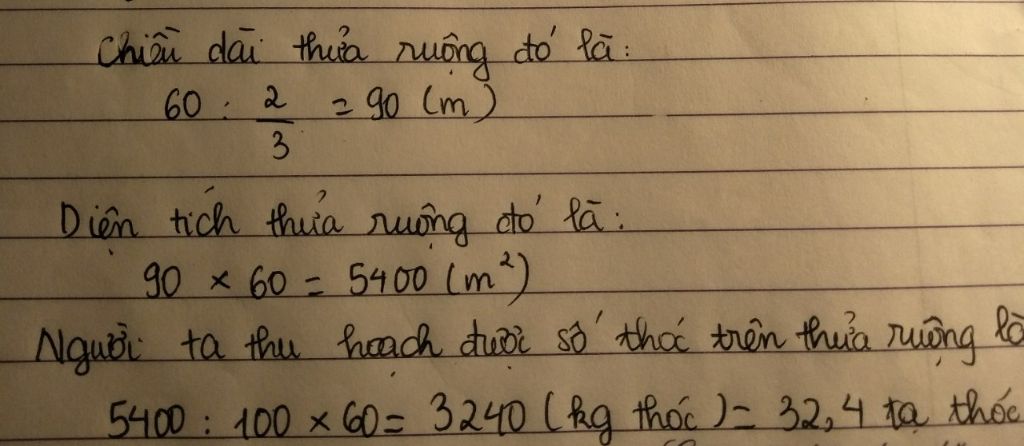 Chiều dài thửa ruộng đó là:
60 : 2/3 = 90 (m)
Diện tích thửa ruộng đó là:
90 × 60 = 5400 (m²)
Người ta thu hoạch được số thóc trên thửa ruộng là
5400 : 100 × 60 = 3240 (kg thóc) = 32,4 tạ thóc